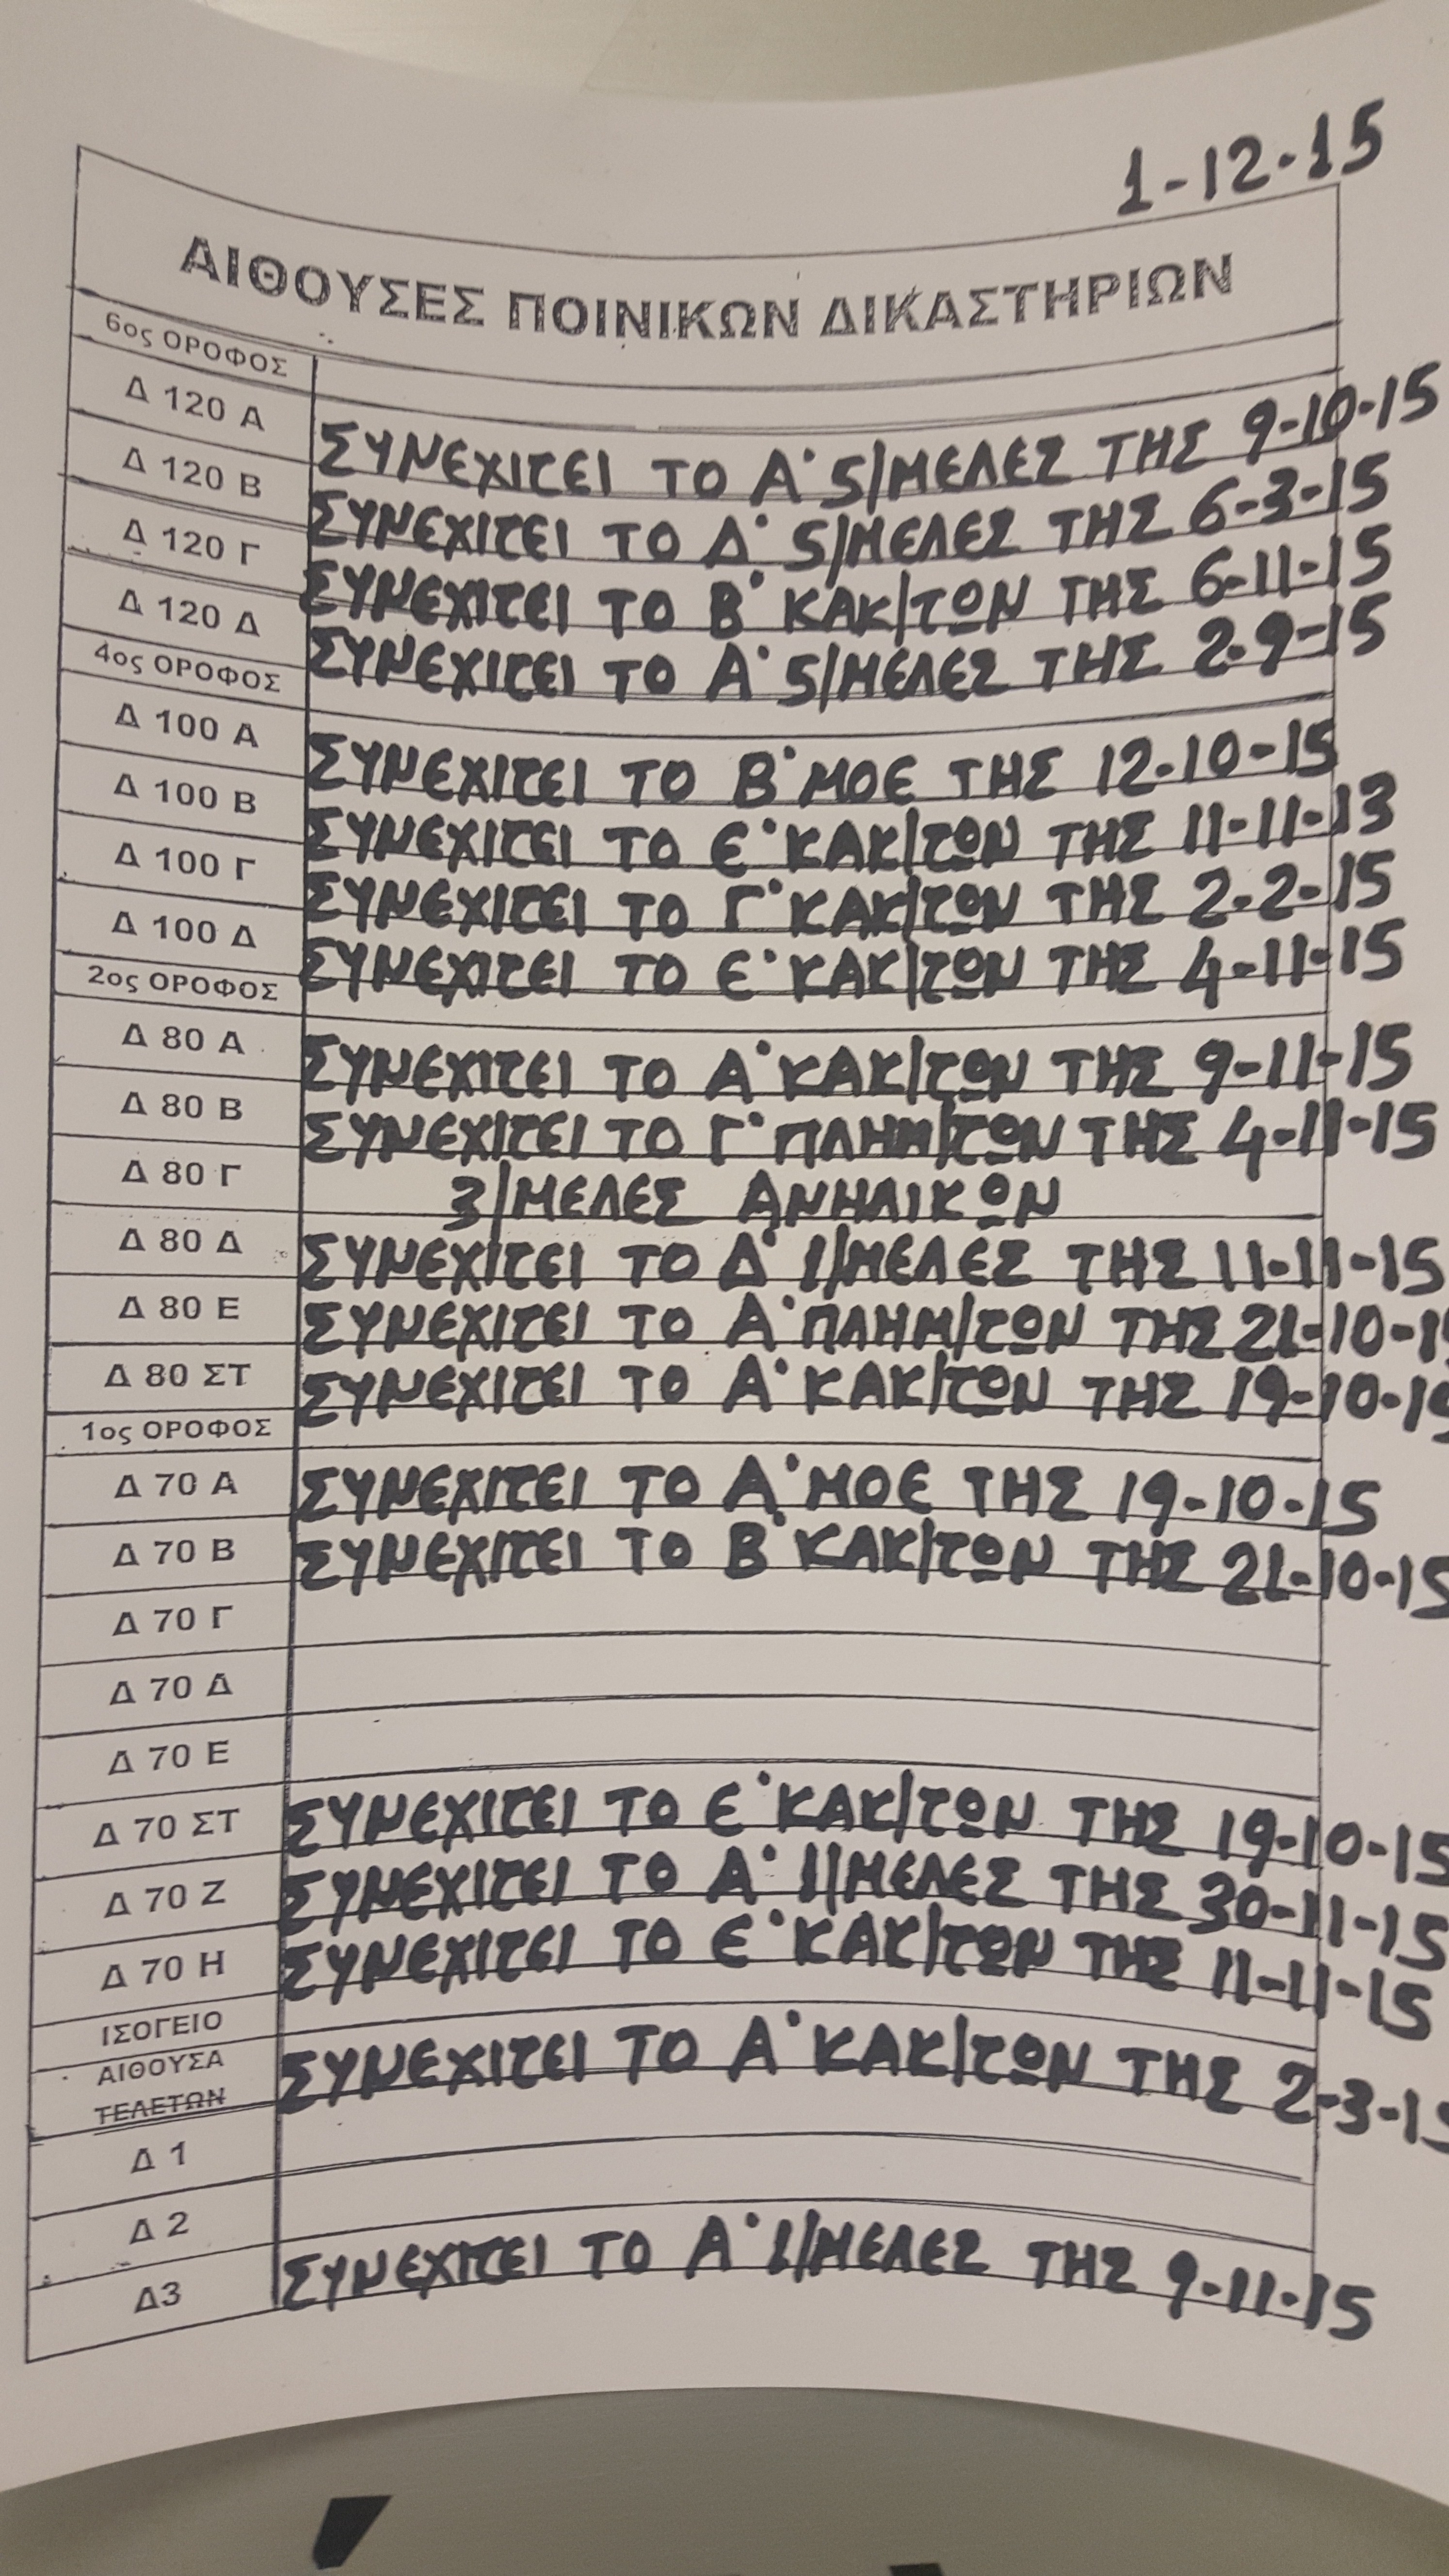 1-12-15
ΑΙΘΟΥΣΕΣ ΠΟΙΝΙΚΩΝ ΔΙΚΑΣΤΗΡΙΩΝ
6ος ΟΡΟΦΟΣ
Δ 120 Α ΣΥΝΕΧΙΖΕΙ ΤΟ Α' 5/ΜΕΛΕΣ ΤΗΣ 9-10-15
Δ 120 Β ΣΥΝΕΧΙΖΕΙ ΤΟ Δ' 5/ΜΕΛΕΣ ΤΗΣ 6-3-15
Δ 120 Γ ΣΥΝΕΧΙΖΕΙ ΤΟ Β' ΚΑΚ/ΤΩΝ ΤΗΣ 6-11-15
Δ 120 Δ ΣΥΝΕΧΙΖΕΙ ΤΟ Α' 5/ΜΕΛΕΣ ΤΗΣ 2-9-15
4ος ΟΡΟΦΟΣ
Δ 100 Α ΣΥΝΕΧΙΖΕΙ ΤΟ Β' ΜΟΕ ΤΗΣ 12-10-15
Δ 100 Β ΣΥΝΕΧΙΖΕΙ ΤΟ Ε' ΚΑΚ/ΤΩΝ ΤΗΣ 11-11-13
Δ 100 Γ ΣΥΝΕΧΙΖΕΙ ΤΟ Γ' ΚΑΚ/ΤΩΝ ΤΗΣ 2-2-15
Δ 100 Δ ΣΥΝΕΧΙΖΕΙ ΤΟ Ε' ΚΑΚ/ΤΩΝ ΤΗΣ 4-11-15
2ος ΟΡΟΦΟΣ
Δ 80 Α ΣΥΝΕΧΙΖΕΙ ΤΟ Α' ΚΑΚ/ΤΩΝ ΤΗΣ 9-11-15
Δ 80 Β ΣΥΝΕΧΙΖΕΙ ΤΟ Γ' ΠΛΗΜ/ΤΩΝ ΤΗΣ 4-11-15
Δ 80 Γ 3/ΜΕΛΕΣ ΑΝΗΛΙΚΩΝ
Δ 80 Δ ΣΥΝΕΧΙΖΕΙ ΤΟ Δ' 1/ΜΕΛΕΣ ΤΗΣ 11-11-15
Δ 80 Ε ΣΥΝΕΧΙΖΕΙ ΤΟ Α' ΠΛΗΜ/ΤΩΝ ΤΗΣ 21-10-15
Δ 80 ΣΤ ΣΥΝΕΧΙΖΕΙ ΤΟ Α' ΚΑΚ/ΤΩΝ ΤΗΣ 19-10-15
1ος ΟΡΟΦΟΣ
Δ 70 Α ΣΥΝΕΧΙΖΕΙ ΤΟ Α' ΜΟΕ ΤΗΣ 19-10-15
Δ 70 Β ΣΥΝΕΧΙΖΕΙ ΤΟ Β' ΚΑΚ/ΤΩΝ ΤΗΣ 21-10-15
Δ 70 Γ
Δ 70 Δ
Δ 70 Ε
Δ 70 ΣΤ ΣΥΝΕΧΙΖΕΙ ΤΟ Ε' ΚΑΚ/ΤΩΝ ΤΗΣ 19-10-15
Δ 70 Ζ ΣΥΝΕΧΙΖΕΙ ΤΟ Α' 1/ΜΕΛΕΣ ΤΗΣ 30-11-15
Δ 70 Η ΣΥΝΕΧΙΖΕΙ ΤΟ Ε' ΚΑΚ/ΤΩΝ ΤΗΣ 11-11-15
ΙΣΟΓΕΙΟ
ΑΙΘΟΥΣΑ
ΤΕΛΕΤΩΝ ΣΥΝΕΧΙΖΕΙ ΤΟ Α' ΚΑΚ/ΤΩΝ ΤΗΣ 2-3-15
Δ 1
Δ 2
Δ3 ΣΥΝΕΧΙΖΕΙ ΤΟ Α' 1/ΜΕΛΕΣ ΤΗΣ 9-11-15